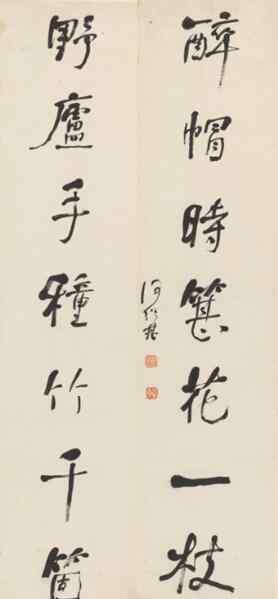 醉帽時簪花一枝
野廬手種竹千箇
何紹基